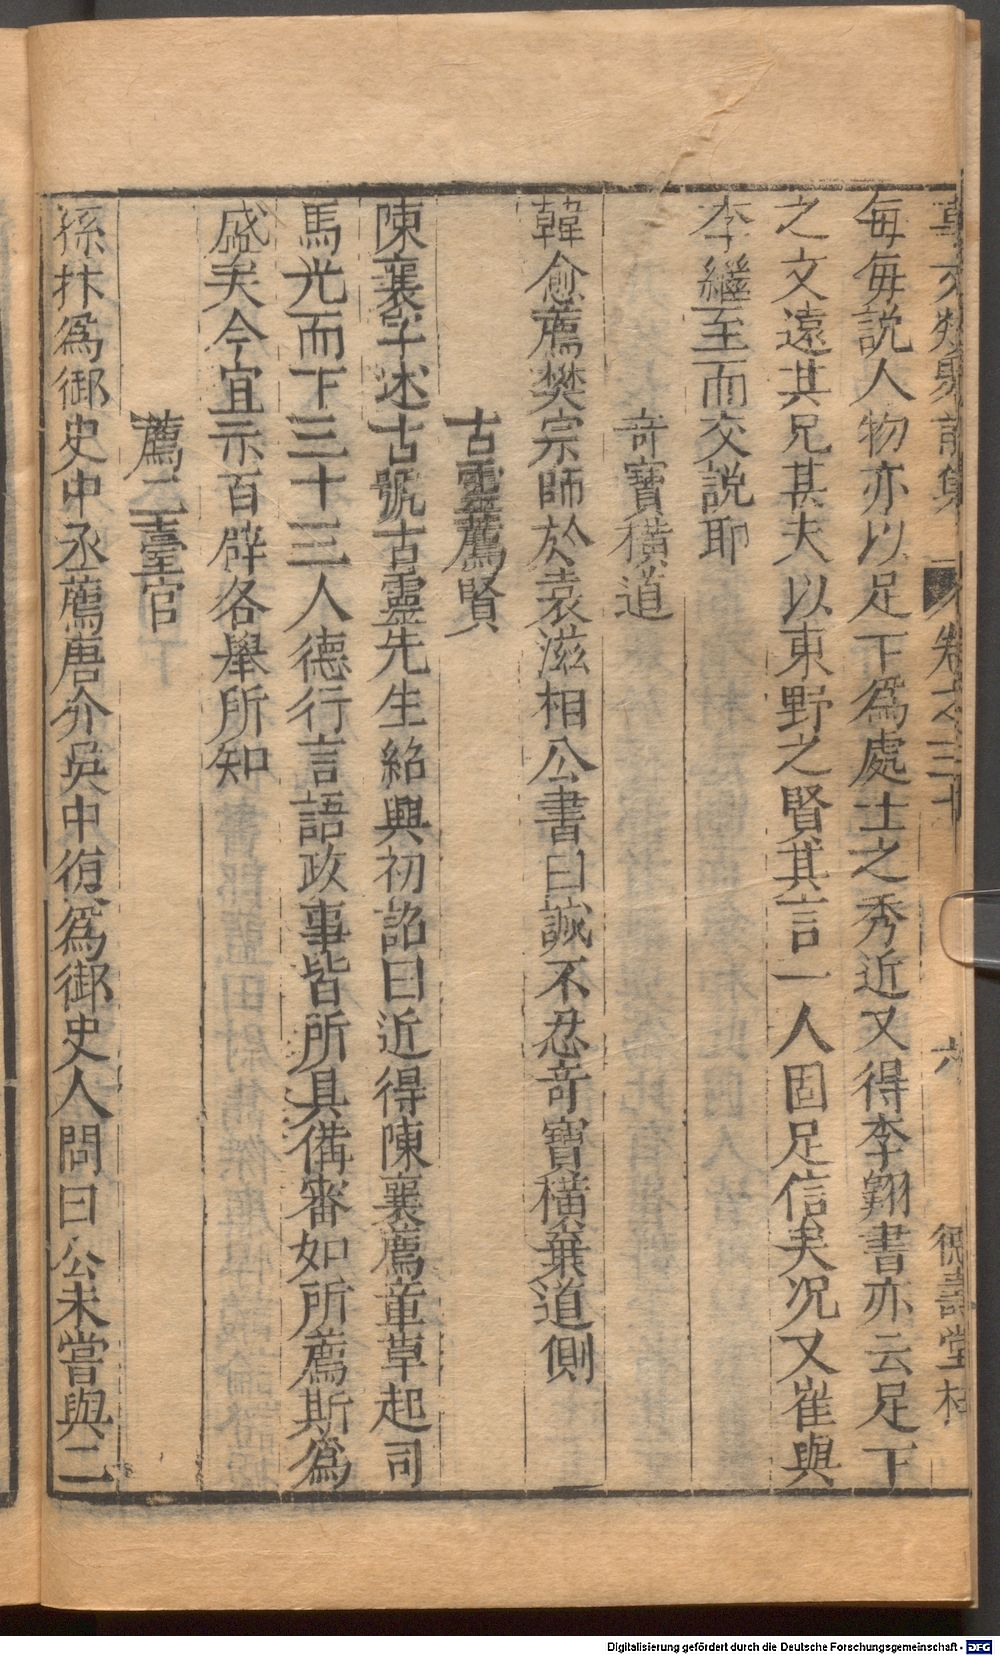 每每説人物亦以足下爲處士之秀近又得李翱書亦云足下
之文遠其兄甚夫以東野之賢其言一人固足信矣况又崔與
李繼至而交説耶
竒寳横道
韓愈薦樊宗師於袁滋相公書曰誠不忍竒寳横棄道側
古靈薦賢
陳襄字述古號古靈先生紹興初詔曰近得陳襄薦章草起司
馬光而下三十三人德行言語政事皆所具備審如所薦斯爲
盛矣今宜示百辟各舉所知
薦二臺官
孫抃爲御史中丞薦唐介吳中復爲御史人問曰公未嘗與二
卷之三十
六
德壽堂梓
Digitalisierung gefördert durch die Deutsche Forschungsgemeinschaft - DFG